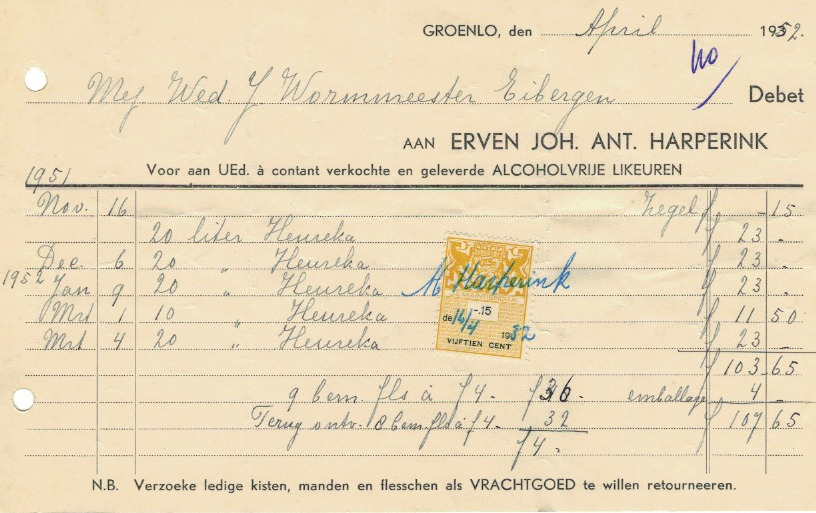 GROENLO, den April 1952.
No
Mej. Wed. J Wormmeester Eibergen Debet
AAN ERVEN JOH. ANT. HARPERINK
Voor aan UEd. à contant verkochte en geleverde ALCOHOLVRIJE LIKEUREN
1951
Nov. 16 Zegel f - 15
20 liter Heureka f 23 -
Dec. 6 20 " Heureka f 23 -
1952 Jan 9 20 " Heureka f 23 -
Mrt 1 10 " Heureka f 11 50
Mrt 4 20 " Heureka f 23 -
Harperink
-.15
de 16/4 1952
VIJFTIEN CENT
f 103 65
9 bem. fls à f4- f36- emballage f 4 -
Terug ontv. 8 bem. fls à f4- 32 f 107 65
f4-
N.B. Verzoeke ledige kisten, manden en flesschen als VRACHTGOED te willen retourneeren.